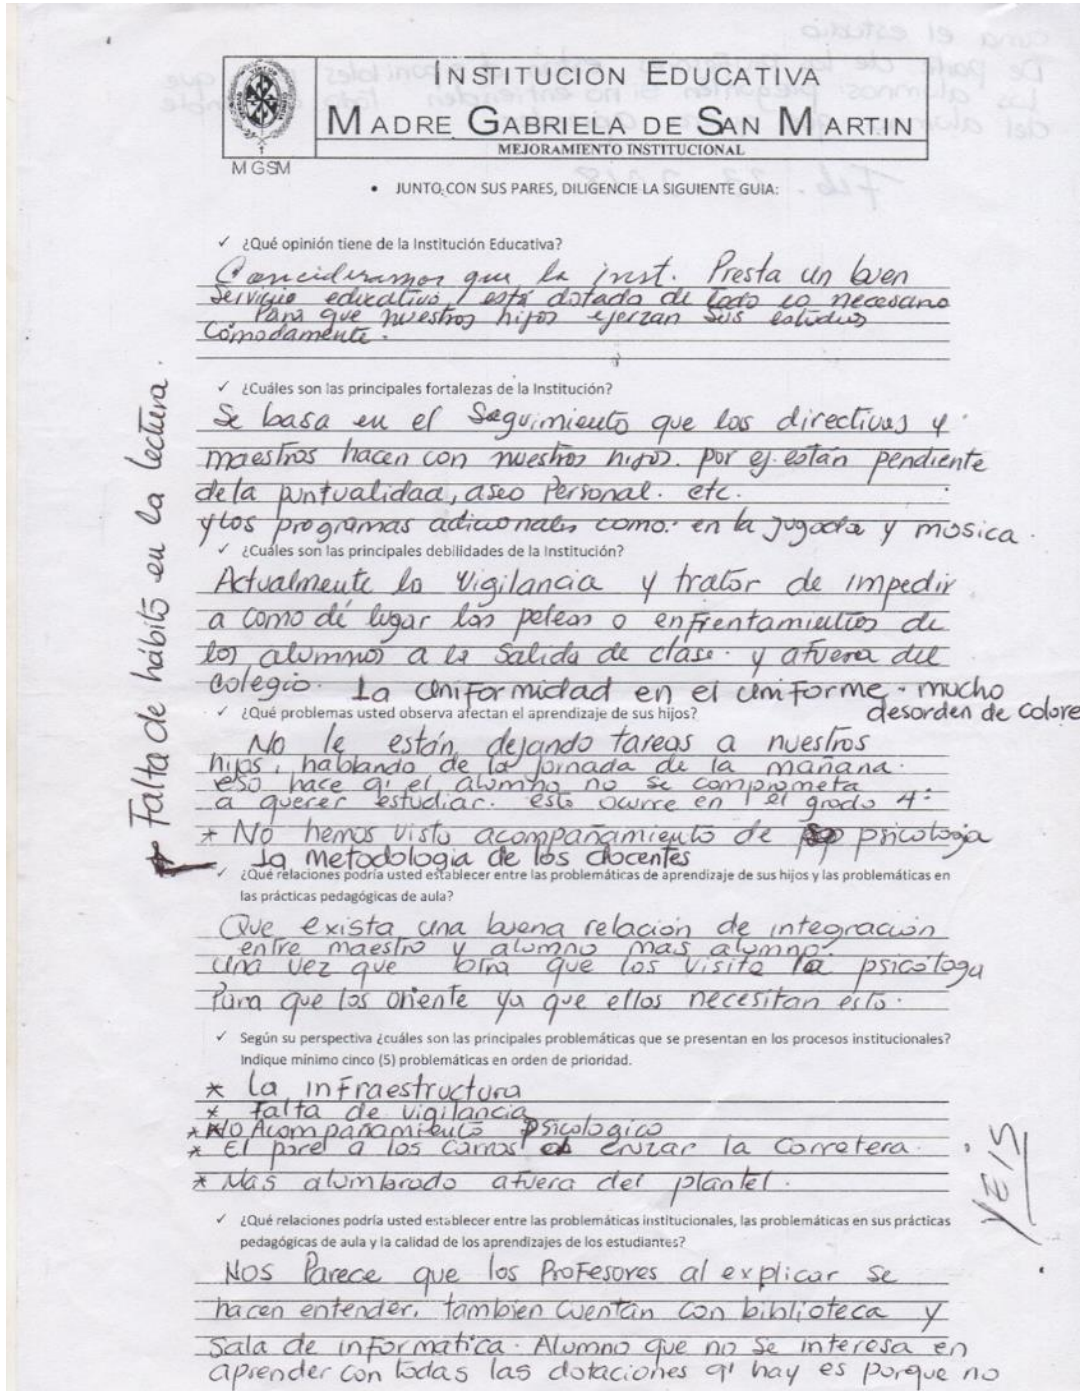 INSTITUCIÓN EDUCATIVA
MADRE GABRIELA DE SAN MARTIN
MEJORAMIENTO INSTITUCIONAL
MGSM
• JUNTO CON SUS PARES, DILIGENCIE LA SIGUIENTE GUIA:
✓ ¿Qué opinión tiene de la Institución Educativa?
Concideramos que la inst. Presta un buen
Servicio educativo, está dotada de todo lo necesario
Para que nuestros hijos ejerzan sus estudios
Cómodamente.
✓ ¿Cuáles son las principales fortalezas de la Institución?
Se basa en el Seguimiento que los directivas y
maestros hacen con nuestros hijos. por ej. están pendiente
de la puntualidad, aseo Personal. etc.
y los programas adicionales como: en la jugada y mosica.
✓ ¿Cuáles son las principales debilidades de la Institución?
Actualmente la vigilancia y trator de impedir
a como dé lugar las peleas o enfrentamientos de
los alumnos a la Salida de clase. y afuera del
colegio. La uniformidad en el uniforme. mucho
desorden de colore
✓ ¿Qué problemas usted observa afectan el aprendizaje de sus hijos?
No le están dejando tareas a nuestros
hijos, hablando de la jornada de la mañana.
eso hace q' el alumno no se comprometa
a querer estudiar. esto ocurre en el grado 4º
* No hemos visto acompañamiento de psicologia
La metodologia de los docentes
Falta de hábito en la lectura.
✓ ¿Qué relaciones podría usted establecer entre las problemáticas de aprendizaje de sus hijos y las problemáticas en
las prácticas pedagógicas de aula?
Que exista una buena relación de integración
entre maestro y alumno mas alumno.
una vez que otra que los visite la psicóloga
Para que los oriente ya que ellos necesitan esto.
✓ Según su perspectiva ¿cuáles son las principales problemáticas que se presentan en los procesos institucionales?
Indique mínimo cinco (5) problemáticas en orden de prioridad.
* La infraestructura
* Falta de vigilancia
* No Acompañamiento Psicologico
* El parel a los carros cruzar la Carretera.
* Mas alumbrado afuera del plantel.
✓ ¿Qué relaciones podría usted establecer entre las problemáticas institucionales, las problemáticas en sus prácticas
pedagógicas de aula y la calidad de los aprendizajes de los estudiantes?
Nos Parece que los Profesores al explicar se
hacen entender. tambien cuentan con biblioteca y
Sala de informatica. Alumno que no se interesa en
aprender con todas las dotaciones q' hay es porque no